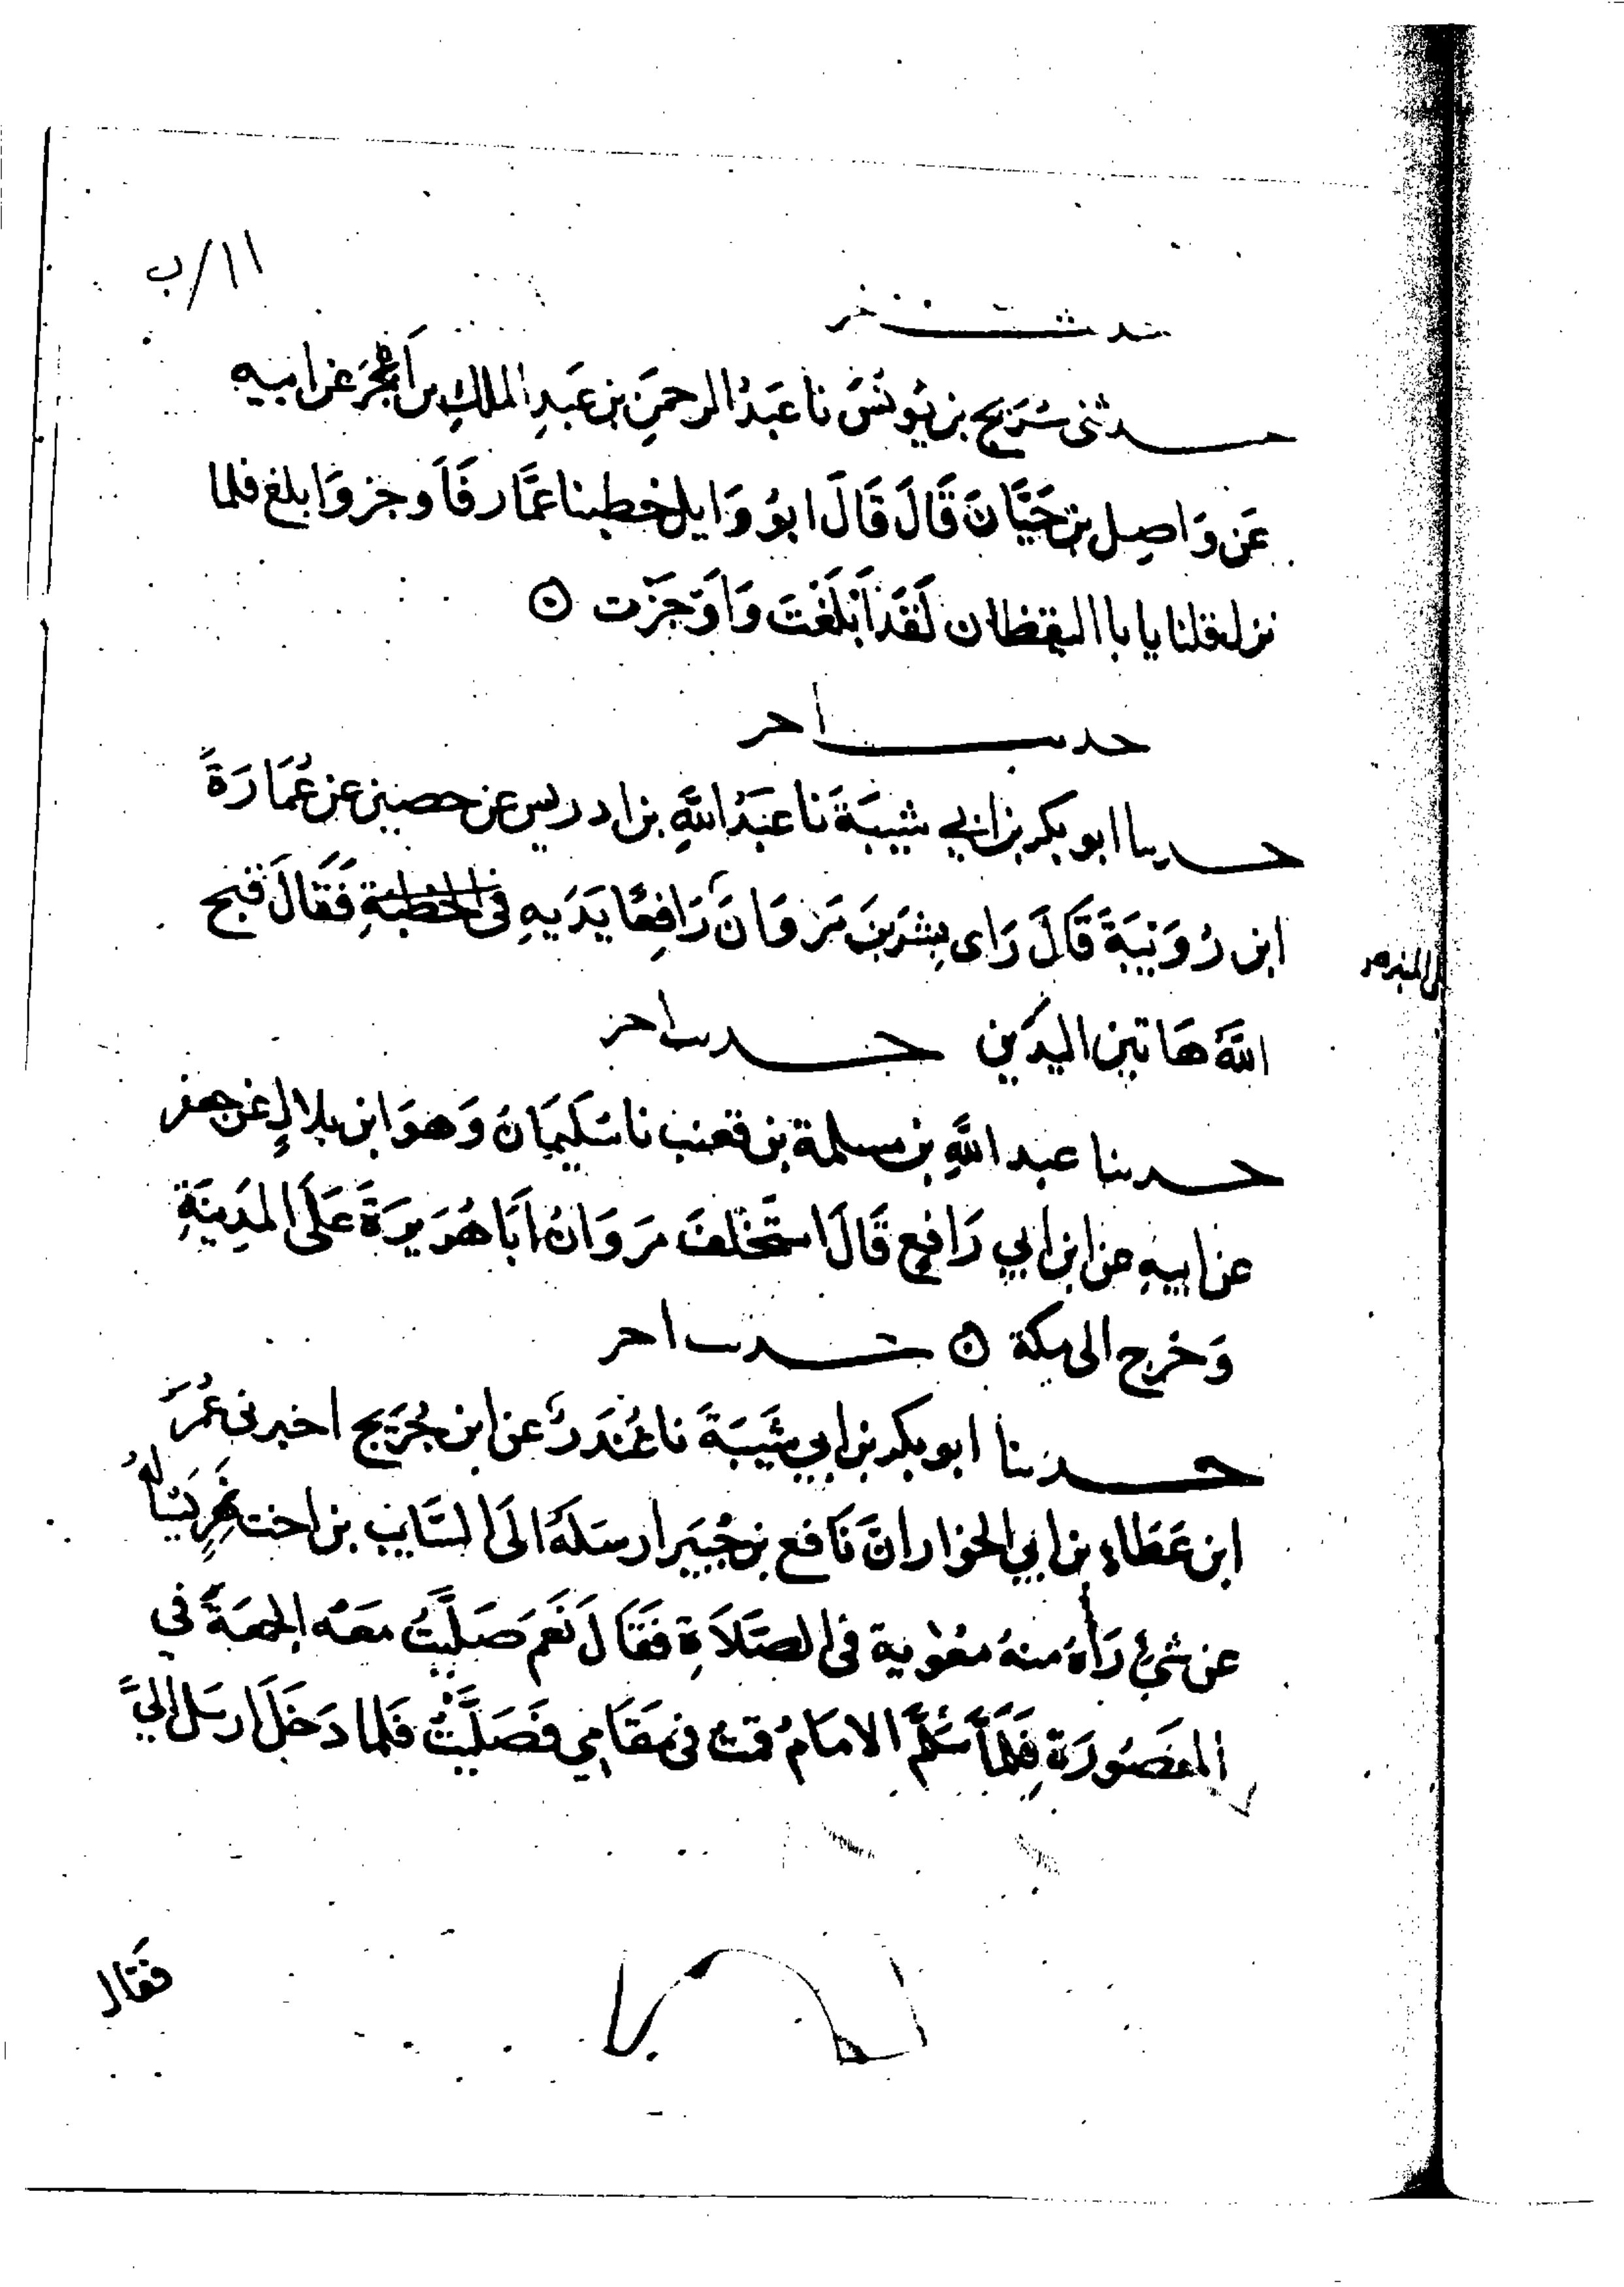 ١١/ب
حديث آخر
حدثني سُرَيج بن يُونُسَ نا عَبدُ الرحمَنِ بن عَبدِ الملكِ بن أَبْجَرَ عن ابيه
عَن وَاصِل بن حَيَّانَ قَالَ قَالَ ابوُ وَايل خطبنا عمَّار فَأَوجز وَابلغ فلما
نزل قلنا يا با اليقظان لَقَد أَبْلَغْتَ وَأَوْجَزْت ⊙
حديث آخر
حدثنا ابو بكر بن ابي شيبَةَ نا عَبدُ اللَّهِ بن ادريس عن حصين عن عُمَارَةَ
ابن رُوَيبَةَ قَالَ رَاى بِشرَ بنَ مَروَانَ رَافِعًا يَدَيهِ في الخطبَةِ فَقَالَ قبح
على المنبر صر
اللَّهُ هَاتين اليدَين حديث آخر
حدثنا عبد اللَّهِ بن مسلمة بن قعنب نا سُلَيمَانُ وَهوَ ابن بلالٍ عن جعفر
عن ابيهِ عن ابن ابي رَافِع قَالَ استَخلفَ مَروَانُ أَبَا هُرَيرَةَ عَلَى المَدِينَةِ
وَخرج الى مكة ⊙ حديث آخر
حدثنا ابو بكر بن ابي شَيبَةَ نا غُندَرٌ عن ابن جُرَيج اخبرني عُمَرُ
ابن عَطَاءِ بن ابي الخوار انَّ نَافع بن جُبَير ارسَلَهُ الَى السَّايب بن اخت نَمِرٍ يَسأَلُهُ
عن شئ رَآهُ منهُ معوية في الصَّلاَةِ فَقَالَ نَعَم صَلَّيتُ معَهُ الجمعَةَ في
المقصُورَةِ فَلَمَّا سَلَّمَ الامَامُ قمتُ في مَقَامِي فَصَلَّيتُ فَلما دَخَلَ ارسَل إليَّ
فقال